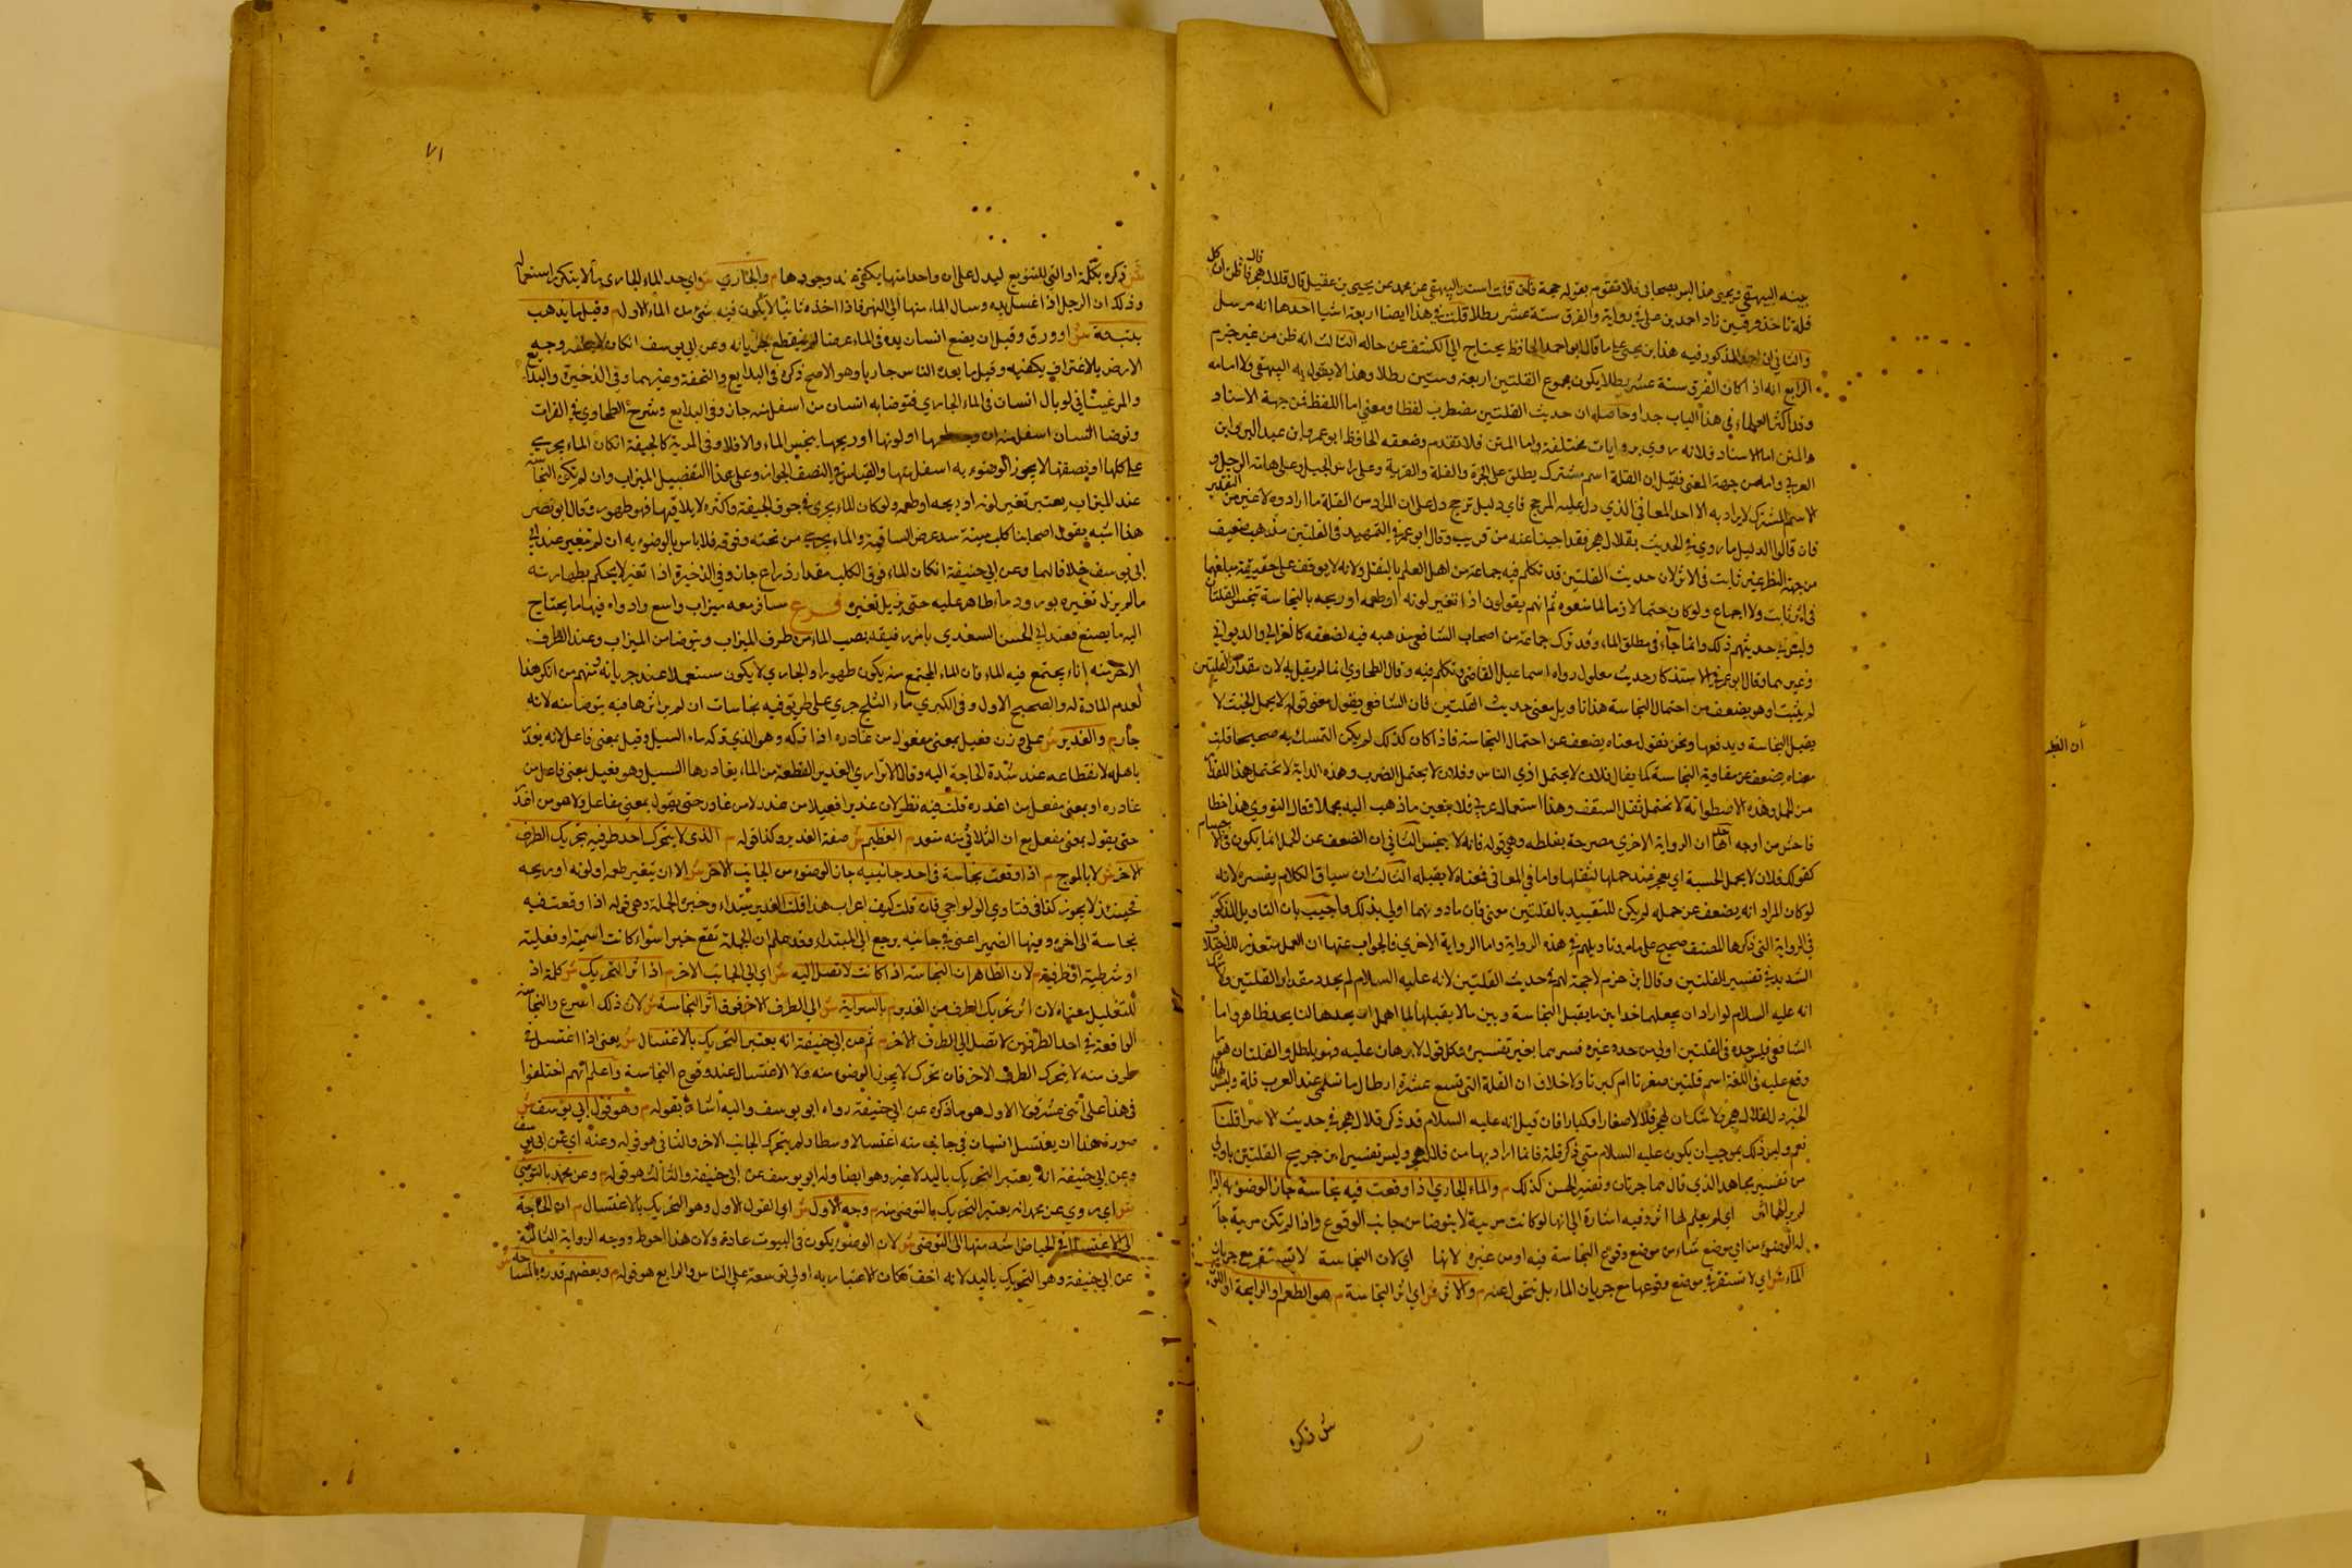 بينه البيهقي ويحيى هذا ليس بصحابي فلا تقوم بقوله حجة فان قلت اسند البيهقي عن محمد عن يحيى بن عقيل قال قلال هجر قال فاظن ان كل
قلة تاخذ فرقين زاد احمد بن علي في رواية والفرق ستة عشر رطلا قلت في هذا ايضا اربعة اشيا احدها انه مرسل
والثاني ان المذكور فيه هذا بن يحيى على ما قال ابو احمد الحافظ يحتاج الى الكشف عن حاله الثالث انه ظن من غير جزم
الرابع انه اذا كان الفرق ستة عشر رطلا يكون مجموع القلتين اربعة وستين رطلا وهذا لا يقول به البيهقي ولا امامه
وقد اكثر العلماء في هذا الباب جدا وحاصله ان حديث القلتين مضطرب لفظا ومعنى اما اللفظ فمن جهة الاسناد
والمتن اما الاسناد فلانه روي بروايات مختلفة واما المتن فلما تقدم وضعفه الحافظ ابو عمر وابن عبد البر وابن
العربي واما من جهة المعنى فقيل ان القلة اسم مشترك يطلق على الجرة والقلة والقربة وعلى راس الجبل وعلى هامة الرجل و
الاسم المشترك لا يراد به الا احد المعاني الذي دل عليه المرجح فاي دليل ترجح دل على ان المراد من القلة ما ارادوه لا غير من التقدير
فان قالوا الدليل ما روي في الحديث بقلال هجر فقد اجبنا عنه من قريب وقال ابو عمر في التمهيد في القلتين مذهب ضعيف
من جهة النظر غير ثابت في الاثر لان حديث القلتين قد تكلم فيه جماعة من اهل العلم بالنقل ولانه لا يوقف على حقيقة مبلغهما
في اثر ثابت ولا اجماع ولو كان حتما لازما لما ضيعوه ثم انهم يقولون اذا تغير لونه او طعمه او ريحه بالنجاسة تنجس القلتان
وليس في حديثهم ذلك وانما جاء في مطلق الماء وقد ترك جماعة من اصحاب الشافعي مذهبه فيه لضعفه كالغزالي والروياني
وغيرهما وقال ابو عمر في الاستذكار حديث معلول رواه اسماعيل القاضي وتكلم فيه وقال الطحاوي انما لم يقل به لان مقدار القلتين
لم يثبت او هو يضعف من احتمال النجاسة هذا تاويل معنى حديث القلتين فان الشافعي يقول معنى قوله لا يحمل الخبث لا
يقبل النجاسة ويدفعها ونحن نقول معناه يضعف عن احتمال النجاسة فاذا كان كذلك لم يكن التمسك به صحيحا قلت
معناه يضعف عن مقاومة النجاسة كما يقال فلان لا يحتمل اذى الناس وفلان لا يحتمل الضرب وهذه الدابة لا تحتمل هذا القدر
من الحمل وهذه الاصطوانة لا تحتمل ثقل السقف وهذا استعمال عربي فلا يتعين ما ذهب اليه محملا فقال النووي هذا خطا
فاحش من اوجه احدها ان الرواية الاخرى مصرحة بغلطه وهي قوله فانه لا ينجس الثاني ان الضعف عن الحمل انما يكون في الاجسام
كقولك فلان لا يحمل الخشبة اي يعجز عند حملها لثقلها واما في المعاني فمعناه لا يقبله الثالث ان سياق الكلام يفسره لانه
لو كان المراد انه يضعف عن حمله لم يكن للتقييد بالقلتين معنى فان ما دونهما اولى بذلك واجيب بان التاويل المذكور
في الرواية التي ذكرها المصنف صحيح على ما مر وتاويلهم في هذه الرواية واما الرواية الاخرى فالجواب عنها ان العمل متعذر للاختلاف
الشديد في تفسير القلتين وقال ابن حزم لا حجة لهم في حديث القلتين لانه عليه السلام لم يحدد مقدار القلتين ولا شك
انه عليه السلام لو اراد ان يجعلهما حدا بين ما يقبل النجاسة وبين ما لا يقبلها لما اهمل ان يحدها لنا بحد ظاهر واما
الشافعي فليس حده في القلتين اولى من حد غيره فسرهما بغير تفسيره وكل قول لا برهان عليه فهو باطل والقلتان هو ما
وقع عليه في اللغة اسم قلتين صغرتا ام كبرتا ولا خلاف ان القلة التي تسع عشرة ارطال ما تسمى عند العرب قلة وليس لهذا
الخبر ذكر لقلال هجر ولا شك ان لهجر قلالا صغارا وكبارا فان قيل انه عليه السلام قد ذكر قلال هجر في حديث الاسرا قلنا
نعم وليس ذلك بموجب ان يكون عليه السلام متى ذكر قلة فانما اراد بها من قلال هجر وليس تفسير ابن جريج القلتين باولى
من تفسير مجاهد الذي قال هما جرتان وتفسير الحسن كذلك م والماء الجاري اذا وقعت فيه نجاسة جاز الوضوء به اذا
لم ير لها اثر اي لم يعلم لها اثر وفيه اشارة الى انها لو كانت مرئية لا يتوضا من جانب الوقوع واذا لم تكن مرئية جاز
له الوضوء من اي موضع شاء من موضع وقوع النجاسة فيه او من غيره لانها اي لان النجاسة لا تستقر مع جريان
الماء ش اي لا تستقر في موضع وقوعها مع جريان الماء بل تتحول عنه م والاثر ش اي اثر النجاسة م هو الطعم او الرايحة او اللون
ش ذكره
ان الطر
٧١
ش ذكره بكلمة او التي للتنويع ليدل على ان واحدا منها يكتفى عند وجودها م والجاري ش اي حد الماء الجاري ما لا يتكرر استعماله
وذلك ان الرجل اذا غسل يده وسال الماء منها الى النهر فاذا اخذه ثانيا لا يكون فيه شيء من الماء الاول م وقيل ما يذهب
بتبنة ش او ورق وقيل ان يضع انسان يده في الماء عرضا لم ينقطع جريانه وعن ابي يوسف ان كان لا ينحسر وجه
الارض بالاغتراف بكفيه وقيل ما يعده الناس جاريا وهو الاصح ذكره في البدايع والتحفة وغيرهما وفي الذخيرة والبدايع
والمرغيناني لو بال انسان في الماء الجاري فتوضا به انسان من اسفل منه جاز وفي البدايع وشرح الطحاوي في الفرات
وتوضا انسان اسفل منه ان طعمها او لونها او ريحها ينجس الماء والا فلا وفي المرية كالجيفة ان كان الماء يجري
على كلها او نصفها لا يجوز الوضوء به اسفل منها والقياس في النصف الجواز وعلى هذا التفصيل الميزاب وان لم تكن النجاسة
عند الميزاب يعتبر تغير لونه او ريحه او طعمه ولو كان الماء يجري في جوف الجيفة واكثره لا يلاقيها فهو طهور وقال ابو نصر
هذا اشبه بقول اصحابنا كلب ميتة سد عرض الساقية والماء يجري من تحته وفوقه فلا باس بالوضوء به ان لم يتغير عند ابي
ابي يوسف خلافا لهما وعن ابي حنيفة ان كان الماء فوق الكلب مقدار ذراع جاز وفي الذخيرة اذا تغير لا يحكم بطهارته
ما لم يزل تغيره بورود ماء طاهر عليه حتى يزيل تغيره فرع مسافر معه ميزاب واسع وادواه فيها ما يحتاج
اليه ما يصنع فعند ابي الحسن السغدي يامر رفيقه يصب الماء من طرف الميزاب ويتوضا من الميزاب وعند الطرف
الاخر منه اناء يجتمع فيه الماء فان الماء المجتمع منه يكون طهورا والجاري لا يكون مستعملا عند جريانه ومنهم من انكر هذا
لعدم المادة له والصحيح الاول وفي الكبرى ماء الثلج جرى على طريق فيه نجاسات ان لم ير اثرها فيه يتوضا منه لانه
جار م والغدير ش على وزن فعيل بمعنى مفعول من غادره اذا تركه وهو الذي تركه ماء السيل وقيل بمعنى فاعل لانه يغدر
باهله لانقطاعه عند شدة الحاجة اليه وقال الاتراري الغدير القطعة من الماء يغادرها السيل وهو فعيل بمعنى فاعل من
غادره او بمعنى مفعل من اغدره قلت فيه نظر لان غديرا فعيلا من غدر لا من غادر حتى يقول بمعنى مفاعل ولا هو من اغدر
حتى يقول بمعنى مفعل مع ان الثلاثي منه متعد م العظيم ش صفة الغدير وكذا قوله م الذي لا يتحرك احد طرفيه بتحريك الطرف
الاخر ش لا بالموج م اذا وقعت نجاسة في احد جانبيه جاز الوضوء من الجانب الاخر ش الا ان يتغير طعمه او لونه او ريحه
فحينئذ لا يجوز كذا في فتاوي الولوالجي فان قلت كيف اعراب هذا قلت الغدير مبتداء وخبره الجملة وهي قوله اذا وقعت فيه
نجاسة الى اخره وفيها الضمير اعني في جانبيه يرجع الى المبتداء وقد علم ان الجملة تقع خبرا سواء كانت اسمية او فعلية
او شرطية او ظرفية م لان الظاهر ان النجاسة اذا كانت لا تصل اليه ش اي الى الجانب الاخر م اذا اثر التحريك ش كلمة اذ
للتعليل معناه لان اثر تحريك الطرف من الغدير م بالسراية ش الى الطرف الاخر فوق اثر النجاسة ش لان ذلك اسرع والنجاسة
الواقعة في احد الطرفين لا تصل الى الطرف الاخر م ثم عن ابي حنيفة انه يعتبر التحريك بالاغتسال ش يعني اذا اغتسل في
طرف منه لا يتحرك الطرف الاخر فان تحرك لا يجوز الوضوء منه ولا الاغتسال عند وقوع النجاسة واعلم انهم اختلفوا
في هذا على اثنى عشر قولا الاول هو ما ذكره عن ابي حنيفة رواه ابو يوسف واليه اشار بقوله م وهو قول ابي يوسف ش
صورة هذا ان يغتسل انسان في جانب منه اغتسالا وسطا ولم يتحرك الجانب الاخر والثاني هو قوله وعنه اي عن ابي يوسف
وعن ابي حنيفة انه يعتبر التحريك باليد لا غير وهو ايضا وله ابو يوسف عن ابي حنيفة والثالث هو قوله م وعن محمد بالتوضي
ش اي روي عن محمد انه يعتبر التحريك بالتوضي منه م وجه الاول ش اي القول الاول وهو التحريك بالاغتسال م ان الحاجة
الى الاغتسال في الحياض اشد منها الى التوضي ش لان الوضوء يكون في البيوت عادة ولان هذا احوط ووجه الرواية الثالثة
عن ابي حنيفة وهو التحريك باليد لانه اخف فكان الاعتبار به اولى توسعة على الناس والرابع هو قوله م وبعضهم قدره بالمساحة ش